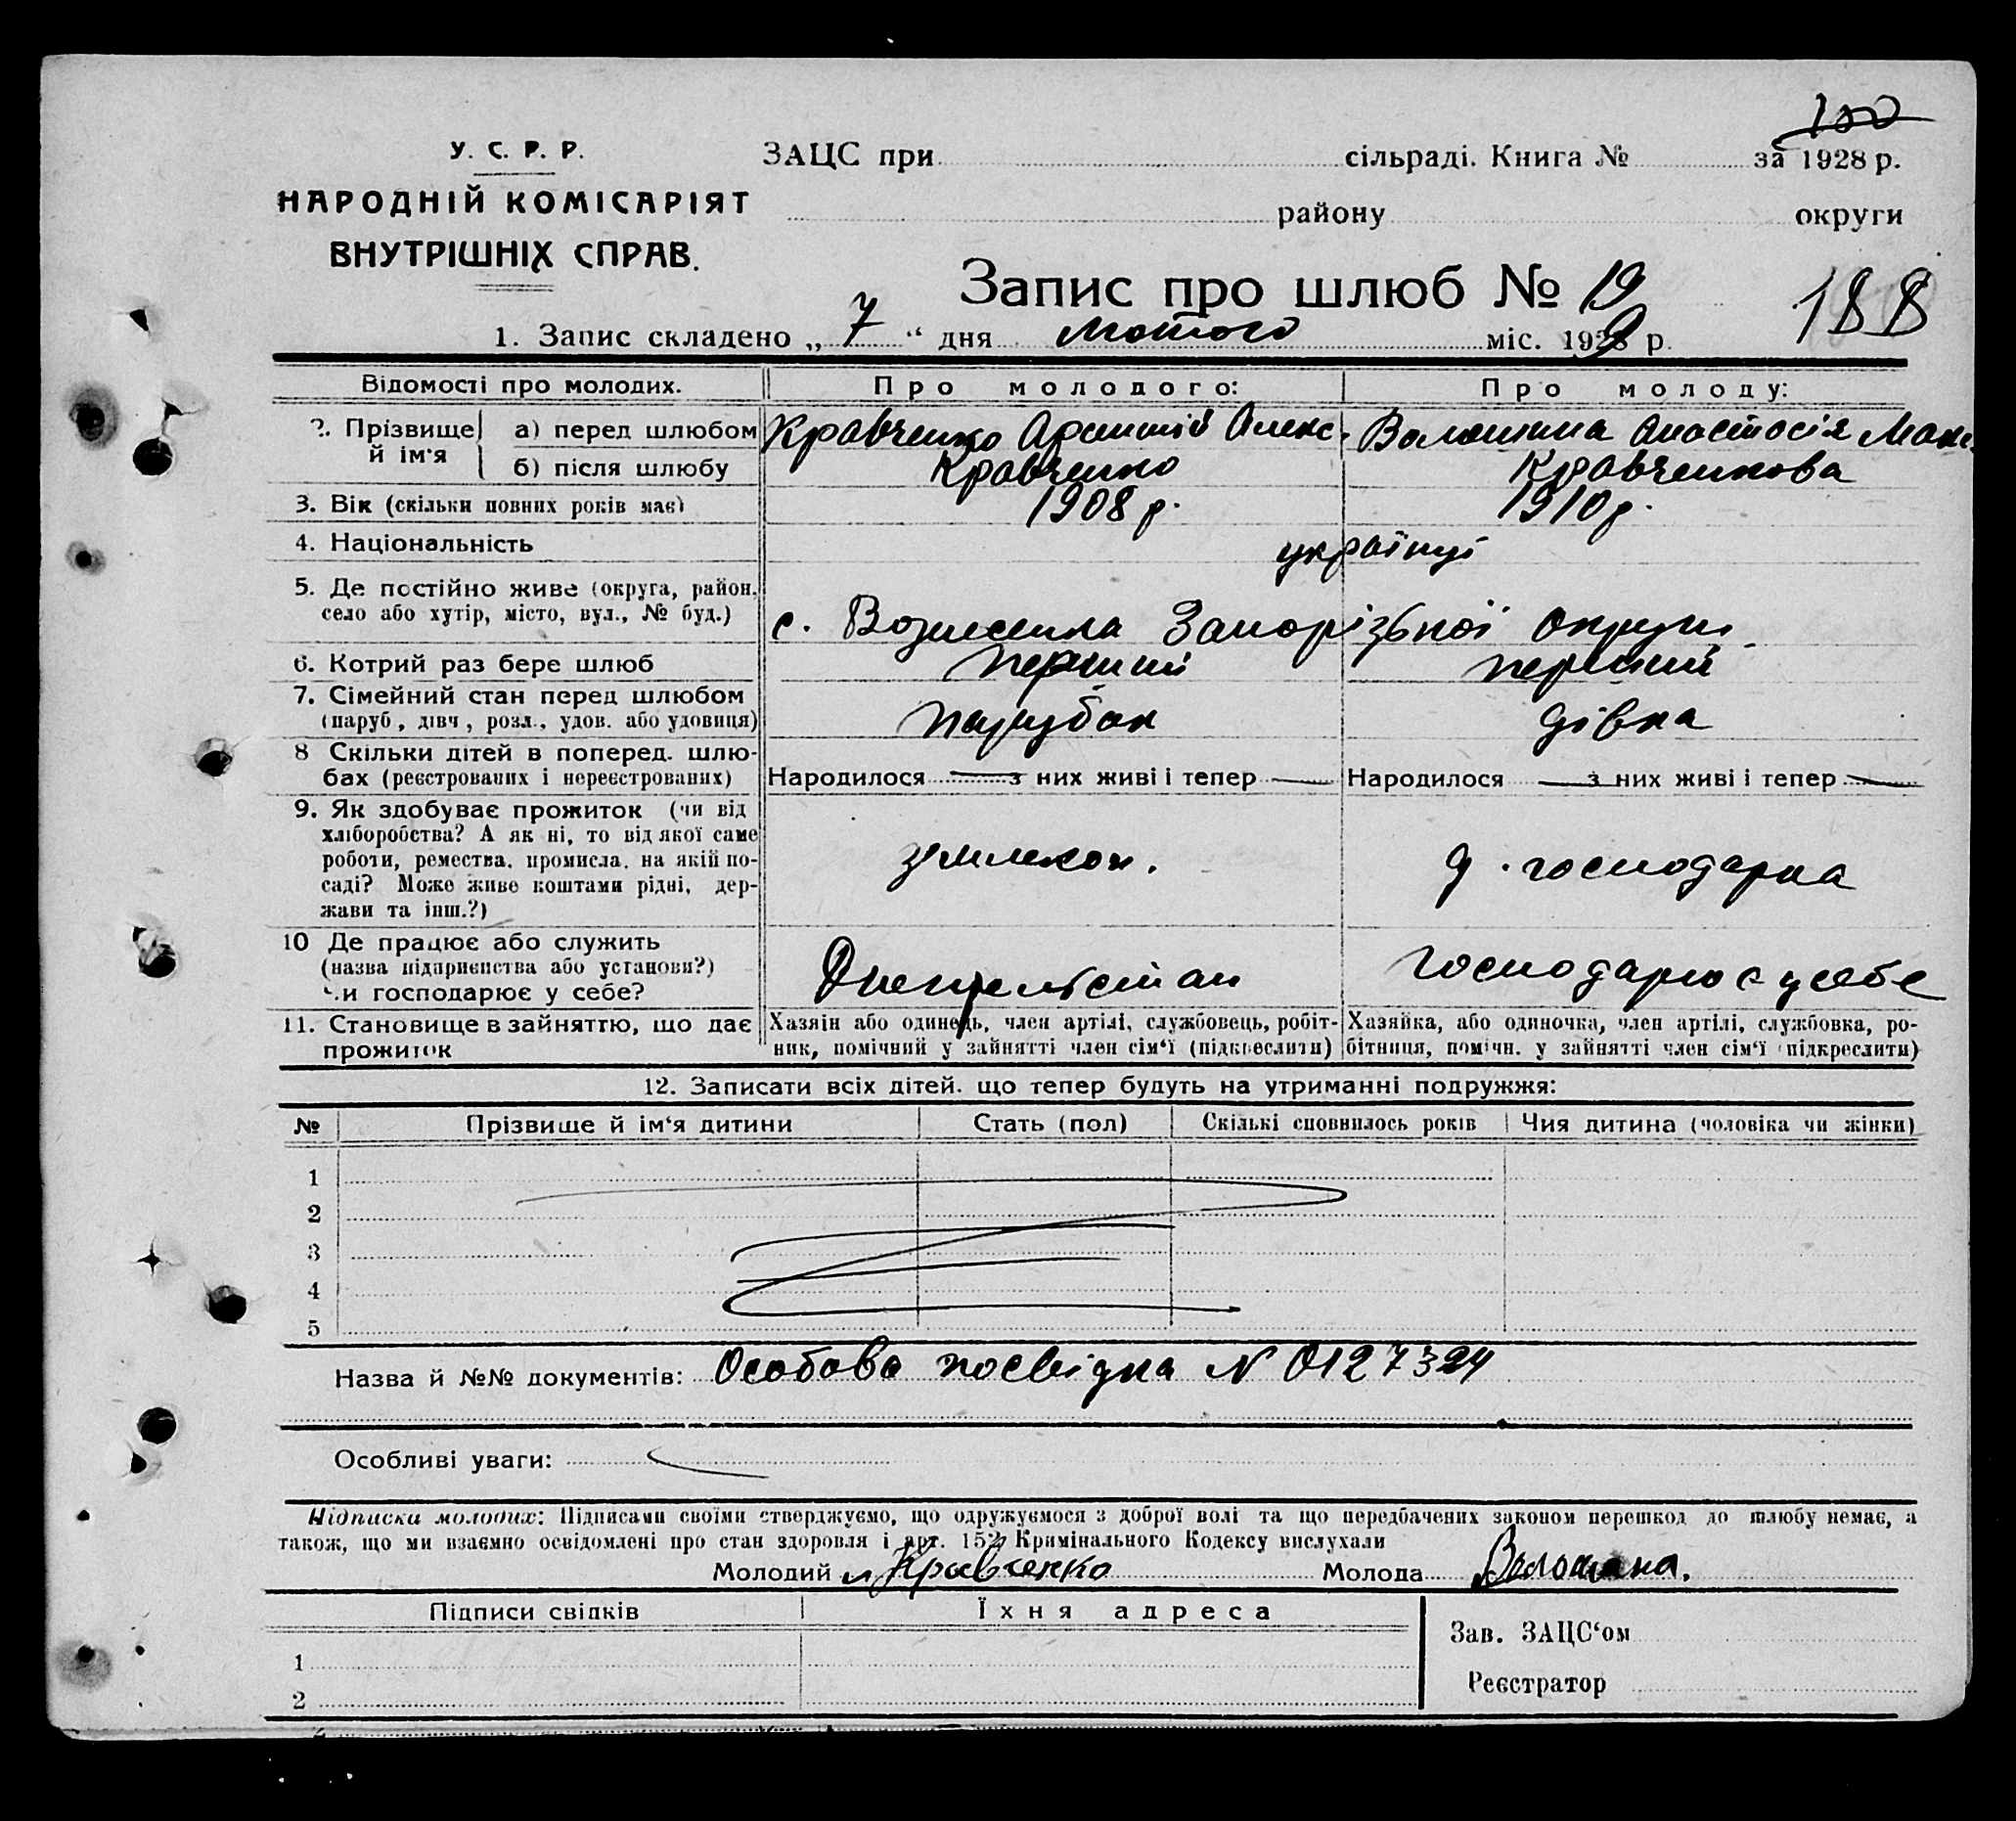 150
У. С. Р. Р.
НАРОДНІЙ КОМІСАРІЯТ
ВНУТРІШНІХ СПРАВ.
ЗАЦС при сільраді. Книга № за 1928 р.
району округи
Запис про шлюб № 19 188
1. Запис складено „ 7 “ дня лютого міс. 1929 р.
Відомості про молодих. Про молодого: Про молоду:
2. Прізвище й ім'я а) перед шлюбом Кравченко Алекс. Волошина Анастосія Макс.
б) після шлюбу Кравченко Кравченкова
3. Вік (скільки повних років має) 1908 р. 1910 р.
4. Національність українці
5. Де постійно живе (округа, район,
село або хутір, місто, вул., № буд.) с. Вознесенка Запорізької Округи
6. Котрий раз бере шлюб перший перший
7. Сімейний стан перед шлюбом
(паруб., дівч., розл., удов. або удовиця) парубок дівка
8 Скільки дітей в поперед. шлю-
бах (реєстрованих і нереєстрованих) Народилося — з них живі і тепер — Народилося — з них живі і тепер —
9. Як здобуває прожиток (чи від
хліборобства? А як ні, то від якої саме
роботи, ремества, промисла, на якій по-
саді? Може живе коштами рідні, дер-
жави та інш.?)
землекоп. д. господарка
10 Де працює або служить
(назва підприємства або установи?)
Чи господарює у себе?
Днепрельстан господарює у себе
11. Становище в зайняттю, що дає
прожиток
Хазяїн або одинець, член артілі, службовець, робіт-
ник, помічний у зайнятті член сім'ї (підкреслити)
Хазяйка, або одиночка, член артілі, службовка, ро-
бітниця, помічн. у зайнятті член сім'ї (підкреслити)
12. Записати всіх дітей. що тепер будуть на утриманні подружжя:
№ Прізвище й ім‘я дитини Стать (пол) Скількі сповнилось років Чия дитина (чоловіка чи жінки)
1
2
3
4
5
Назва й №№ документів: Особова посвідка N 0127324
Особливі уваги:
Підписи молодих: Підписами своїми стверджуємо, що одружуємося з доброї волі та що передбачених законом перешкод до шлюбу немає, а
також, що ми взаємно освідомлені про стан здоровля і арт. 152 Кримінального Кодексу вислухали
Молодий Кравченко Молода Волошина.
Підписи свідків Їхня адреса
Зав. ЗАЦС‘ом
1
Реєстратор
2